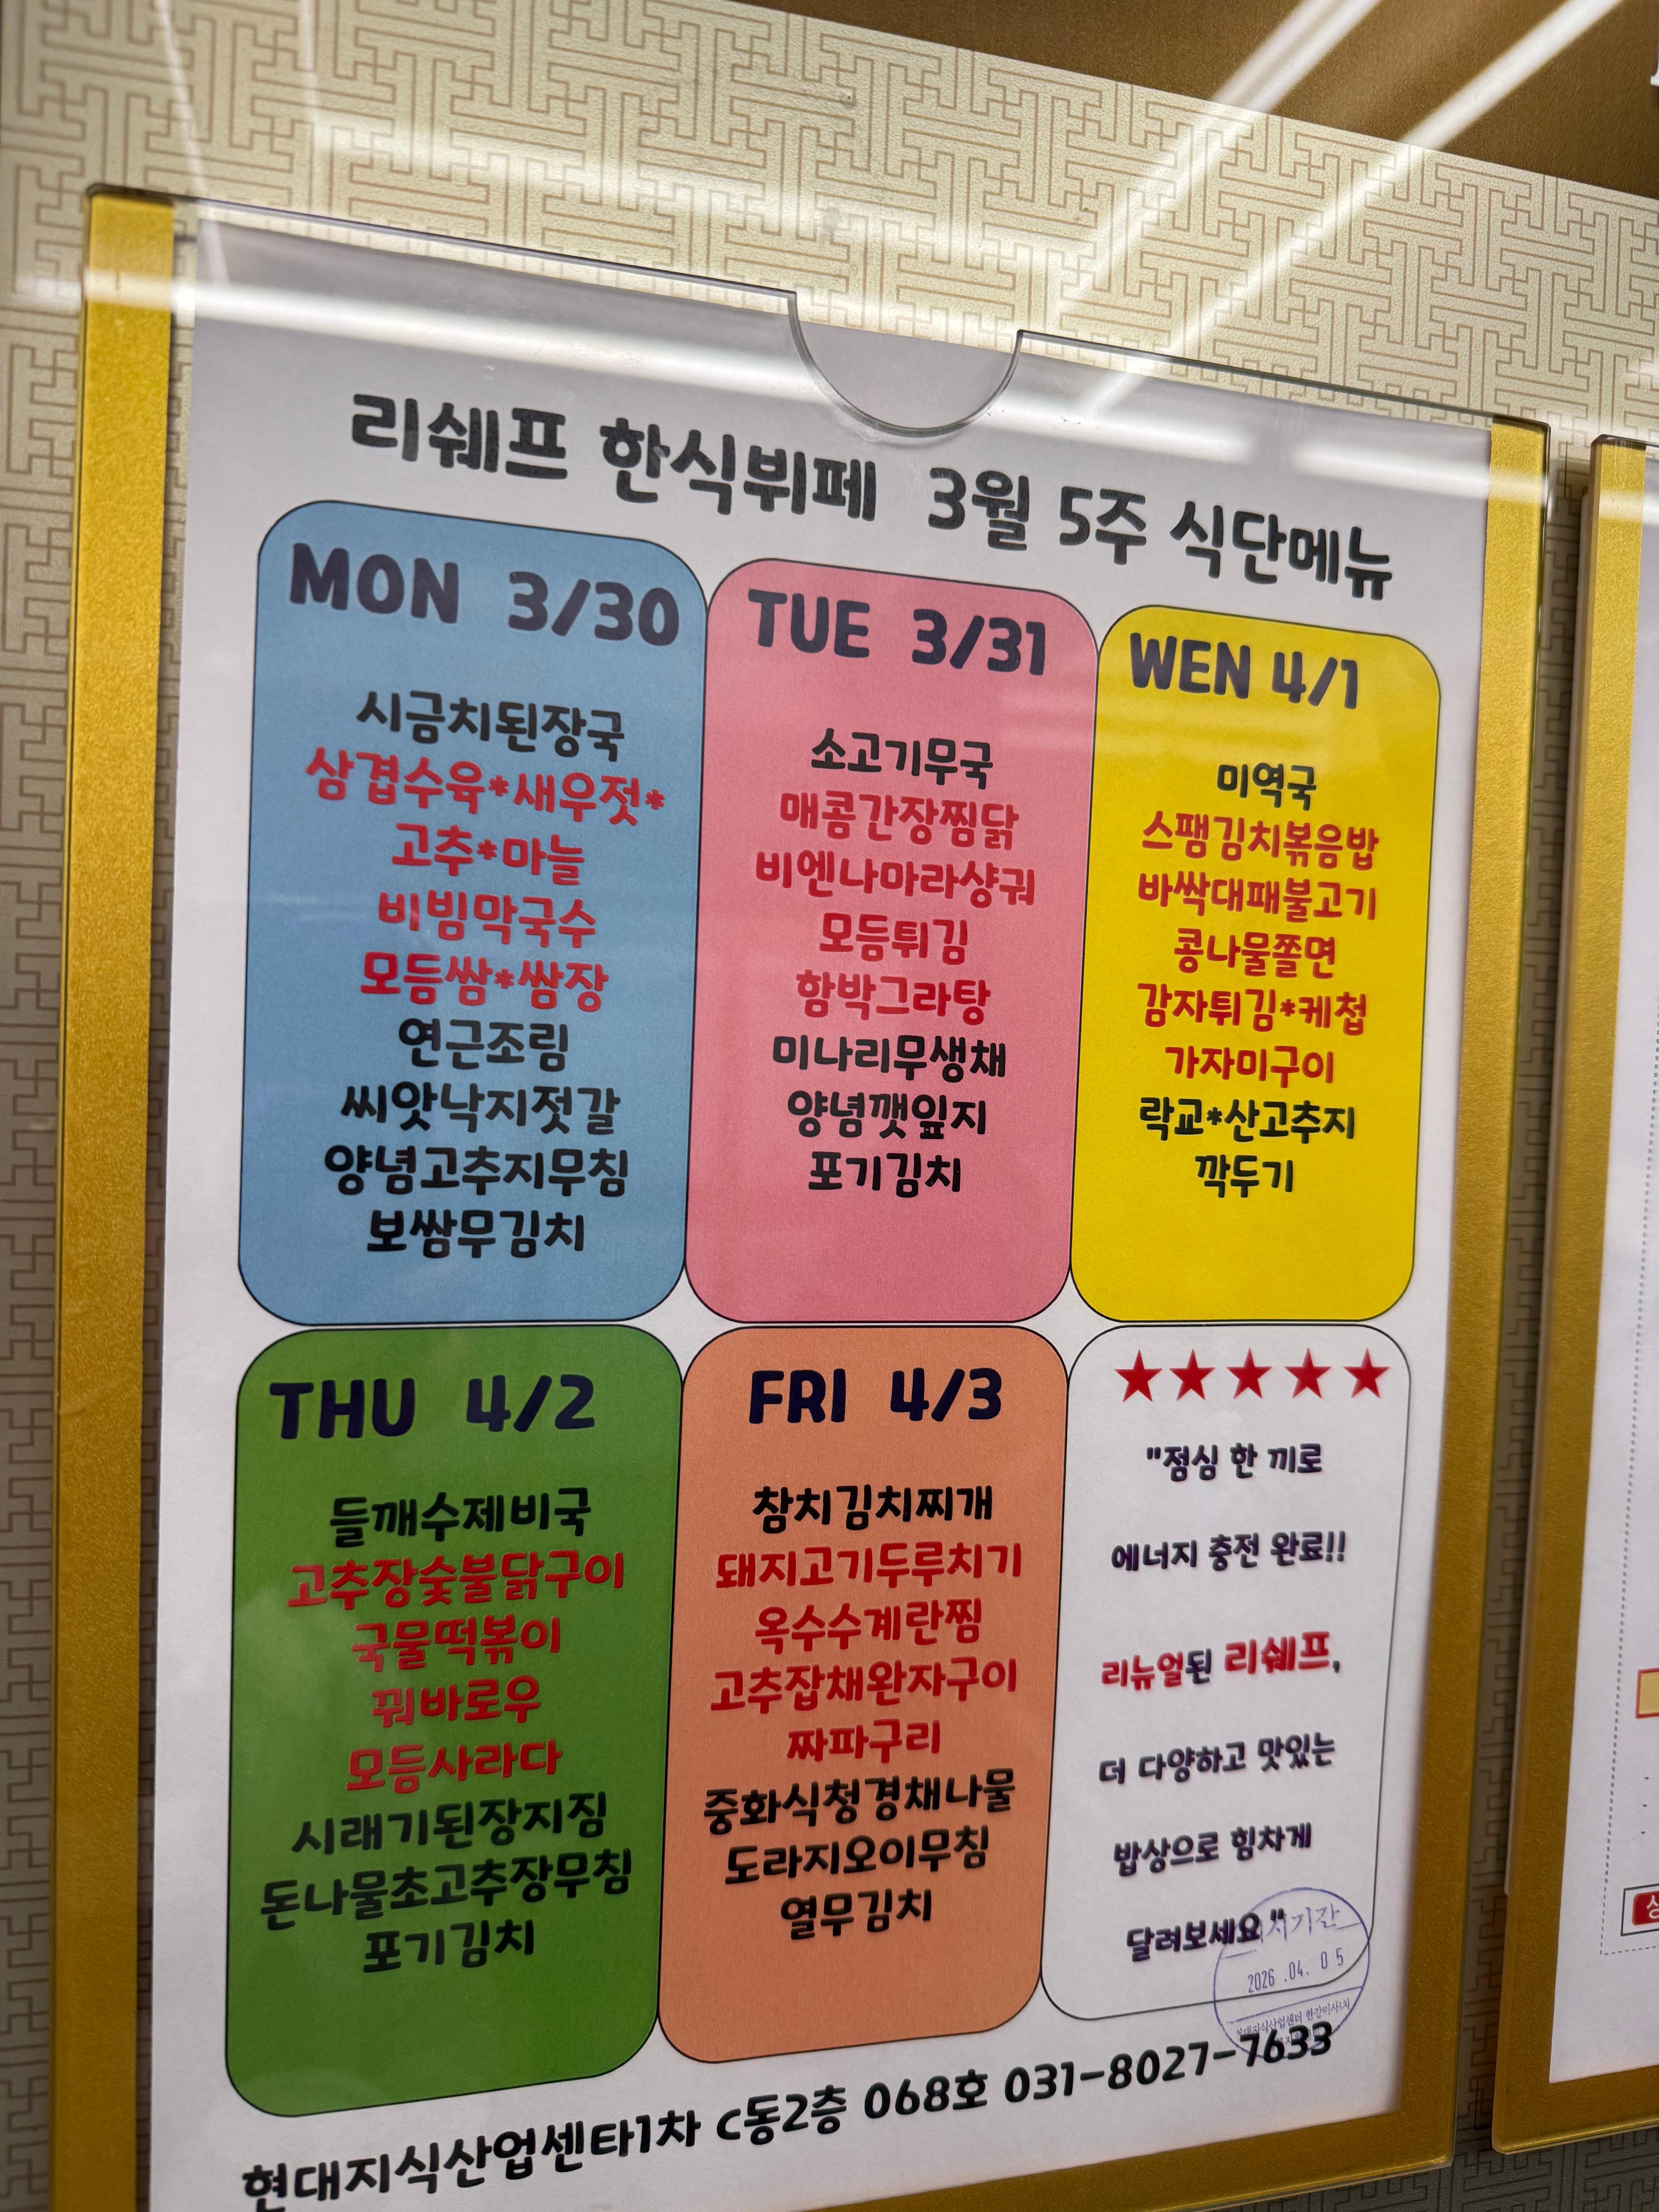 리쉐프 한식뷔페 3월 5주 식단메뉴
MON 3/30
시금치된장국
삼겹수육*새우젓*
고추*마늘
비빔막국수
모듬쌈*쌈장
연근조림
씨앗낙지젓갈
양념고추지무침
보쌈무김치
TUE 3/31
소고기무국
매콤간장찜닭
비엔나마라샹궈
모듬튀김
함박그라탕
미나리무생채
양념깻잎지
포기김치
WEN 4/1
미역국
스팸김치볶음밥
바싹대패불고기
콩나물쫄면
감자튀김*케첩
가자미구이
락교*산고추지
깍두기
THU 4/2
들깨수제비국
고추장숯불닭구이
국물떡볶이
꿔바로우
모듬사라다
시래기된장지짐
돈나물초고추장무침
포기김치
FRI 4/3
참치김치찌개
돼지고기두루치기
옥수수계란찜
고추잡채완자구이
짜파구리
중화식청경채나물
도라지오이무침
열무김치
★★★★★
"점심 한 끼로
에너지 충전 완료!!
리뉴얼된 리쉐프,
더 다양하고 맛있는
밥상으로 힘차게
달려보세요"
2026.04.05
현대지식산업센타1차 C동2층 068호 031-8027-7633